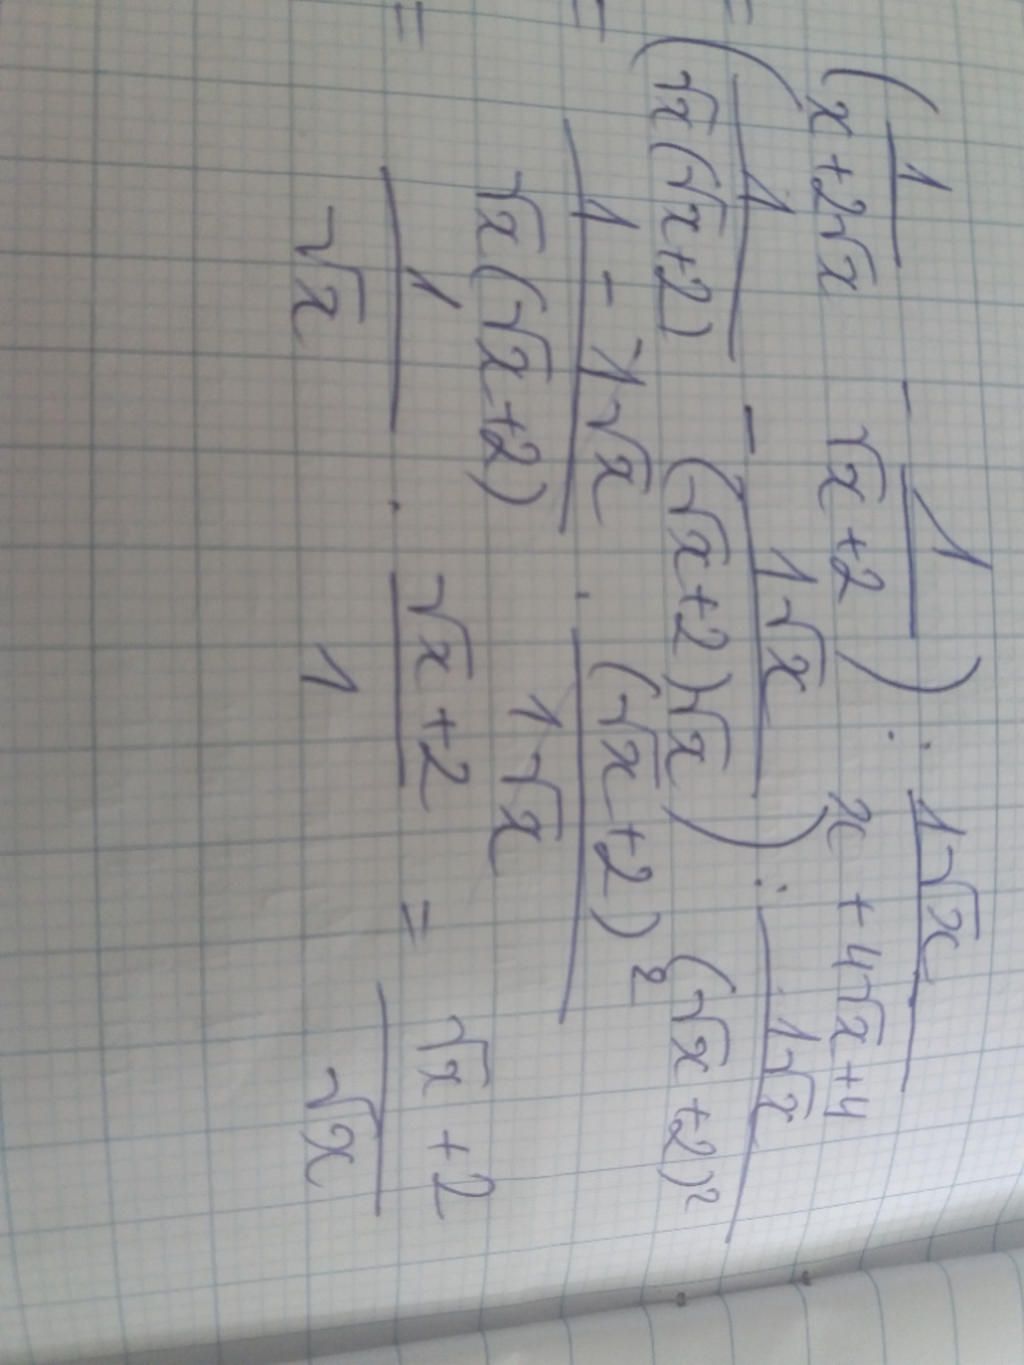 (1/(x+2√x) - 1/(√x+2)) : 1√x/(x+4√x+4)
= (1/(√x(√x+2)) - 1√x/((√x+2)√x)) : 1√x/(√x+2)²
= (1-1√x)/(√x(√x+2)) · (√x+2)²/(1√x)
= 1/√x · (√x+2)/1 = (√x+2)/√x